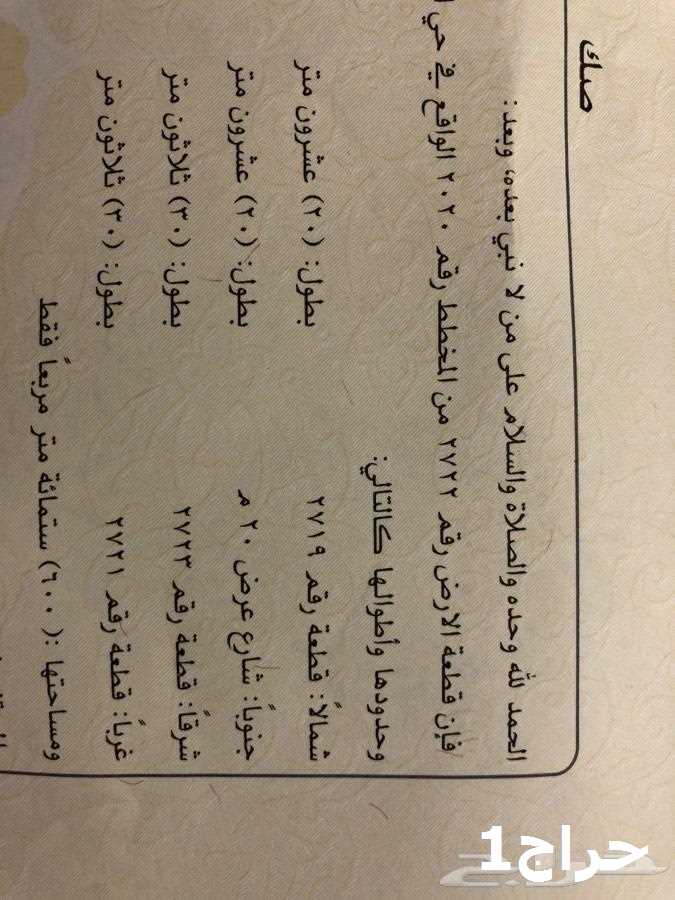 صك
الحمد لله وحده والصلاة والسلام على من لا نبي بعده، وبعد:
فإن قطعة الارض رقم ٢٧٢٢ من المخطط رقم ٢٠٢٠ الواقع في حي
وحدودها وأطوالها كالتالي:
شمالاً: قطعة رقم ٢٧١٩ بطول: (٢٠) عشرون متر
جنوباً: شارع عرض ٢٠ م بطول: (٢٠) عشرون متر
شرقاً: قطعة رقم ٢٧٢٣ بطول: (٣٠) ثلاثون متر
غرباً: قطعة رقم ٢٧٢١ بطول: (٣٠) ثلاثون متر
ومساحتها :( ٦٠٠) ستمائة متر مربعاً فقط
حراج1